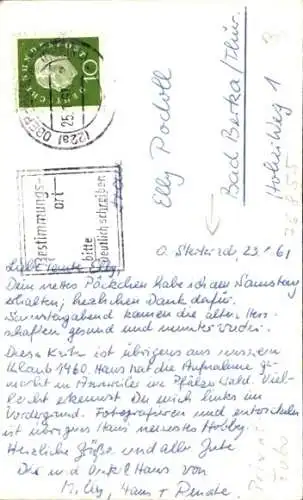 DEUTSCHE BUNDESPOST
10
(22a) OBER
25.
Bestimmungs-
ort
bitte
deutlich schreiben
Elly Podoll
Bad Berka/Thür.
23. 61
Liebe Tante Elly,
Dein nettes Päckchen habe ich am Samstag
erhalten; herzlichen Dank dafür.
kamen die alten Herr-
schaften gesund und munter wieder.
Diese Karte ist übrigens aus unserem
Urlaub 1960. Hans hat die Aufnahme ge-
macht in Annweiler im Pfälzer Wald. Viel-
leicht erkennst Du mich links im
Vordergrund. Fotografieren und entwickeln
ist übrigens Hans neuestes Hobby.
Herzliche Grüße und alles Gute
Dir und Onkel Hans von
Hans + Renate.
Privat
Foto